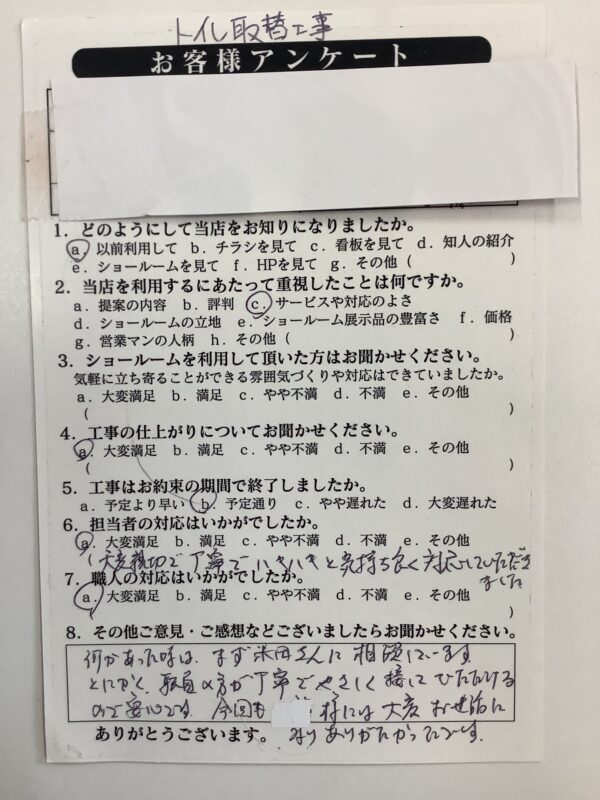 トイレ取替工事
お客様アンケート
1．どのようにして当店をお知りになりましたか。
a．以前利用して b．チラシを見て c．看板を見て d．知人の紹介
e．ショールームを見て f．HPを見て g．その他（ ）
2．当店を利用するにあたって重視したことは何ですか。
a．提案の内容 b．評判 c．サービスや対応のよさ
d．ショールームの立地 e．ショールーム展示品の豊富さ f．価格
g．営業マンの人柄 h．その他（ ）
3．ショールームを利用して頂いた方はお聞かせください。
気軽に立ち寄ることができる雰囲気づくりや対応はできていましたか。
a．大変満足 b．満足 c．やや不満 d．不満 e．その他
（ ）
4．工事の仕上がりについてお聞かせください。
a．大変満足 b．満足 c．やや不満 d．不満 e．その他
（ ）
5．工事はお約束の期間で終了しましたか。
a．予定より早い b．予定通り c．やや遅れた d．大変遅れた
6．担当者の対応はいかがでしたか。
a．大変満足 b．満足 c．やや不満 d．不満 e．その他
（大変親切で丁寧でハキハキと気持ち良く対応していただき
ました
7．職人の対応はいかがでしたか。
a．大変満足 b．満足 c．やや不満 d．不満 e．その他
）
8．その他ご意見・ご感想などございましたらお聞かせください。
何かあった時は、まず さんに相談しています。
とにかく、 の方が丁寧でやさしく接していただける
ので安心です。今回も 様には大変お世話に
ありがとうございます。 なりありがたかったです。